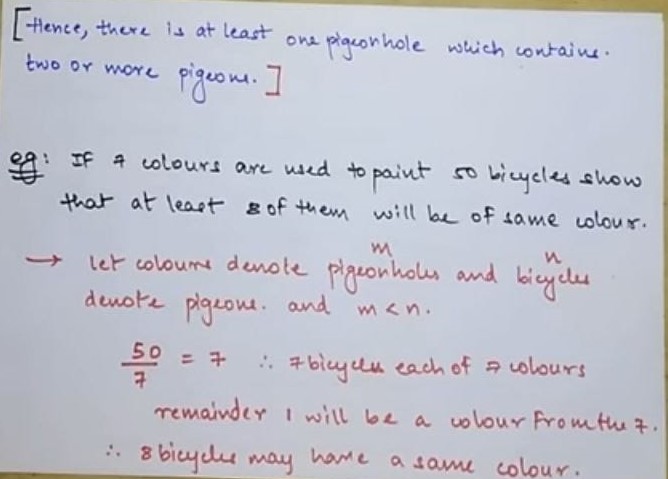 [Hence, there is at least one pigeonhole which contains.
two or more pigeons.]
eg: If 7 colours are used to paint 50 bicycles show
that at least 8 of them will be of same colour.
→ let colours denote pigeonholes and bicycles
m n
denote pigeons. and m<n.
50/7 = 7 ∴ 7 bicycles each of 7 colours
remainder 1 will be a colour from the 7.
∴ 8 bicycles may have a same colour.